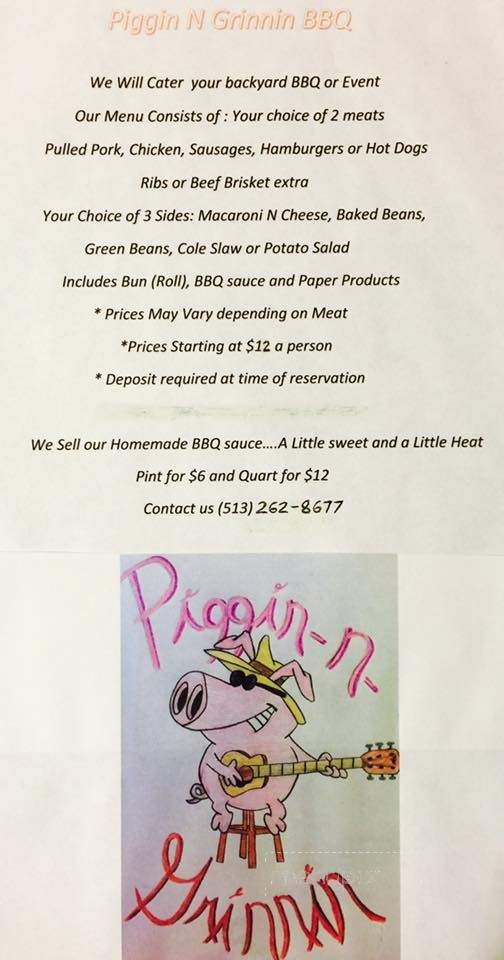 Piggin N Grinnin BBQ
We Will Cater your backyard BBQ or Event
Our Menu Consists of : Your choice of 2 meats
Pulled Pork, Chicken, Sausages, Hamburgers or Hot Dogs
Ribs or Beef Brisket extra
Your Choice of 3 Sides: Macaroni N Cheese, Baked Beans,
Green Beans, Cole Slaw or Potato Salad
Includes Bun (Roll), BBQ sauce and Paper Products
* Prices May Vary depending on Meat
*Prices Starting at $12 a person
* Deposit required at time of reservation
We Sell our Homemade BBQ sauce....A Little sweet and a Little Heat
Pint for $6 and Quart for $12
Contact us (513) 262-8677
Piggin-n-
Grinnin